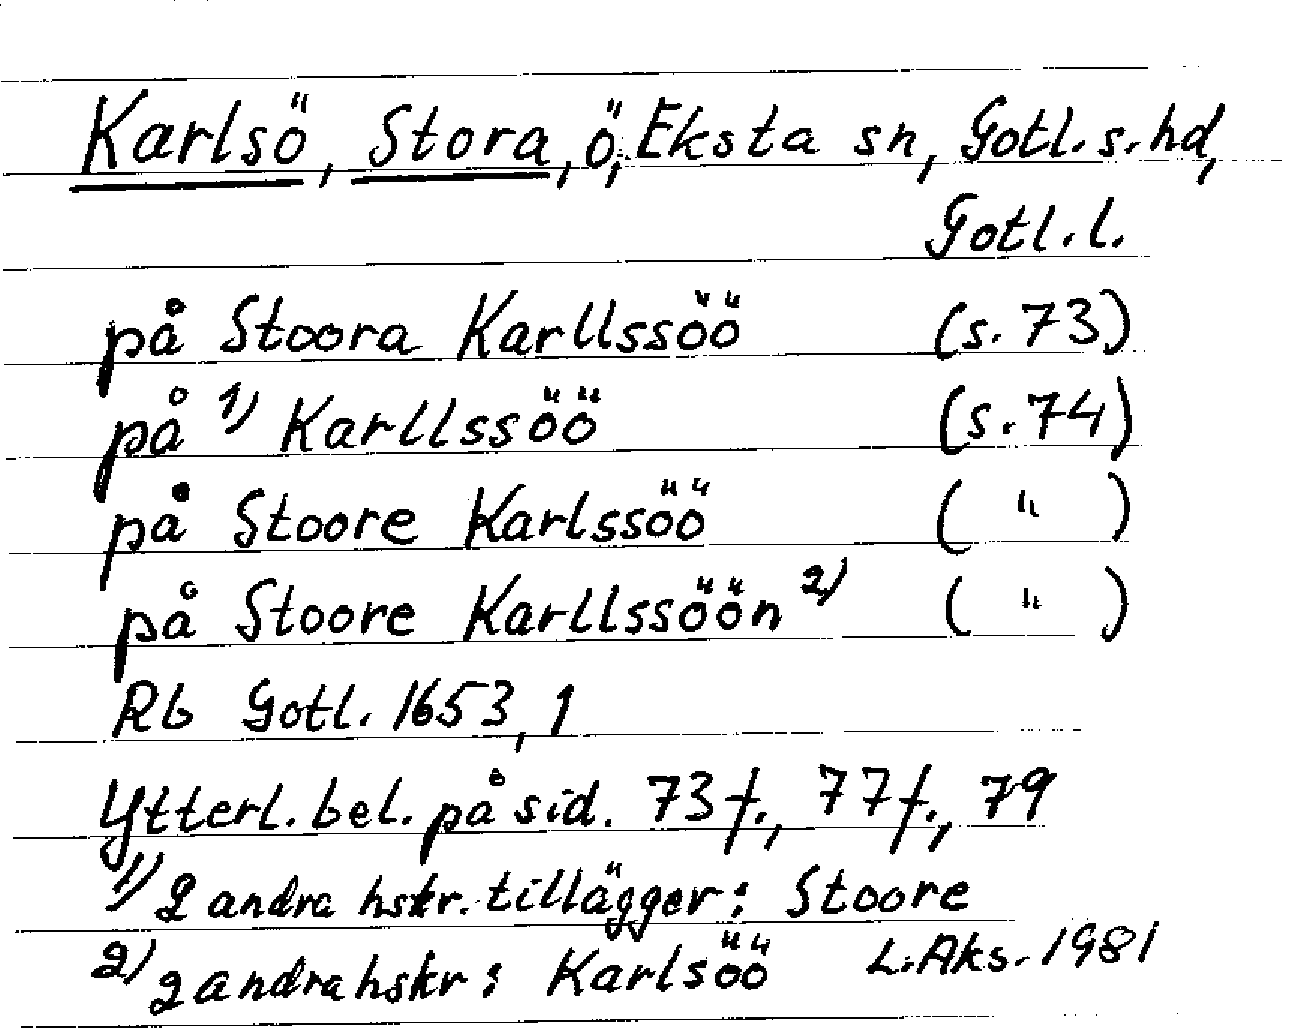 Karlsö, Stora, ö, Eksta sn, Gotl. s. hd,
Gotl. l.
på Stoora Karllssöö (s. 73)
på 1) Karllssöö (s. 74)
på Stoore Karlssöö ( " )
på Stoore Karllssöön 2) ( " )
Rb Gotl. 1653, 1
Ytterl. bel. på sid. 73 f., 77 f., 79
1) 2 andra hskr. tillägger: Stoore
2) 2 andra hskr: Karlsöö L. Aks. 1981